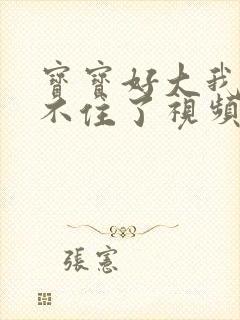 寶寶好大我
不住了視頻
張憲